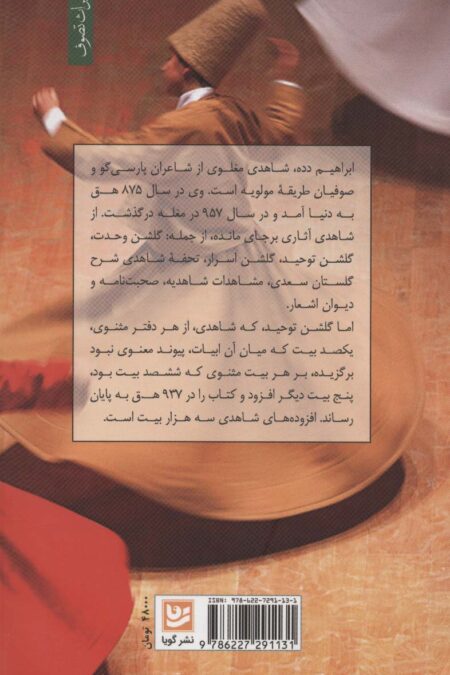 میراث تصوف
ابراهیم دده، شاهدی مغلوی از شاعران پارسی‌گو و
صوفیان طریقهٔ مولویه است. وی در سال ۸۷۵ هـ‌ق
به دنیا آمد و در سال ۹۵۷ در مغله درگذشت. از
شاهدی آثاری برجای مانده، از جمله: گلشن وحدت،
گلشن توحید، گلشن اسرار، تحفهٔ شاهدی شرح
گلستان سعدی، مشاهدات شاهدیه، صحبت‌نامه و
دیوان اشعار.
اما گلشن توحید، که شاهدی، از هر دفتر مثنوی،
یکصد بیت که میان آن ابیات، پیوند معنوی نبود
برگزیده، بر هر بیت مثنوی که ششصد بیت بود،
پنج بیت دیگر افزود و کتاب را در ۹۳۷ هـ‌ق به پایان
رساند. افزوده‌های شاهدی سه هزار بیت است.
ISBN: 978-622-7291-13-1
9 786227 291131
نشر گویا
۴۸۰۰۰ تومان